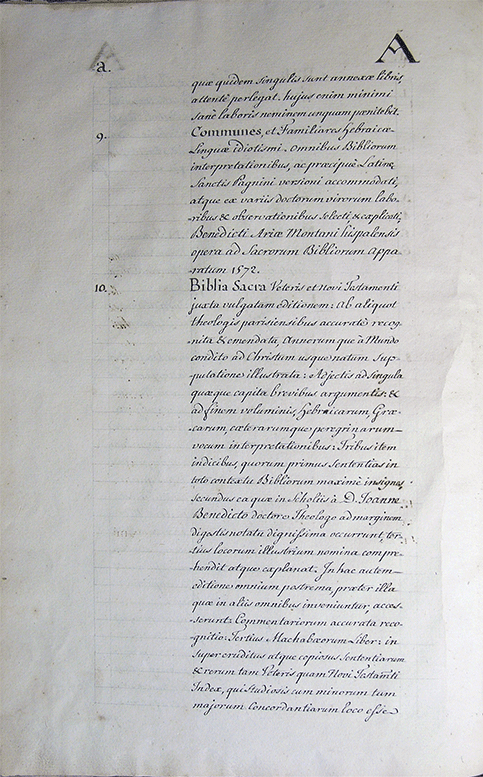 A
a.
quæ quidem singulis sunt annexæ libris,
attentè perlegat. hujus enim minimi
sanè laboris neminem unquam pænitebit.
9. Communes, et Familiares hebraicæ
Linguæ idiotismi, omnibus Bibliorum
interpretationibus, ac præcipuè Latinę
Sanctis Pagnini versioni accommodati,
atque ex variis doctorum virorum labo-
ribus & observationibus selecti & explicati,
Benedicti Ariæ Montani hispalensis
opera ad Sacrorum Bibliorum Appa-
ratum 1572.
10. Biblia Sacra Veteris et Novi Testamenti
juxta vulgatam editionem: Ab aliquot
theologis parisiensibus accuratè recog-
nita & emendata, Annorum que à Mundo
condito ad Christum usque natum Sup-
putatione illustrata: Adjectis ad singula
quæque capita brevibus argumentis: &
ad finem voluminis hebraicarum Græ-
carum, cæterarumque peregrinarum-
vocum interpretationibus: Tribus item
indicibus, quorum primus Sententias in
toto contextu Bibliorum maximè insignes,
secundus ea quæ in Scholiis à D. Joanne
Benedicto doctore Theologo ad marginem
digestis notatu dignissima occurrunt ter-
tius locorum illustrium nomina compre-
hendit atque explanat: In hac autem-
editione omnium postrema, præter illa
quæ in aliis omnibus inveniuntur, acces-
serunt: Commentariorum accurata reco-
gnitio: Tertius Machabæorum Liber: in
super eruditus atque copiosus Sententiarum
& rerum tam Veteris quam Novi Testam̃ti
Index, qui studiosis cum minorum tum
majorum Concordantiarum loco esse